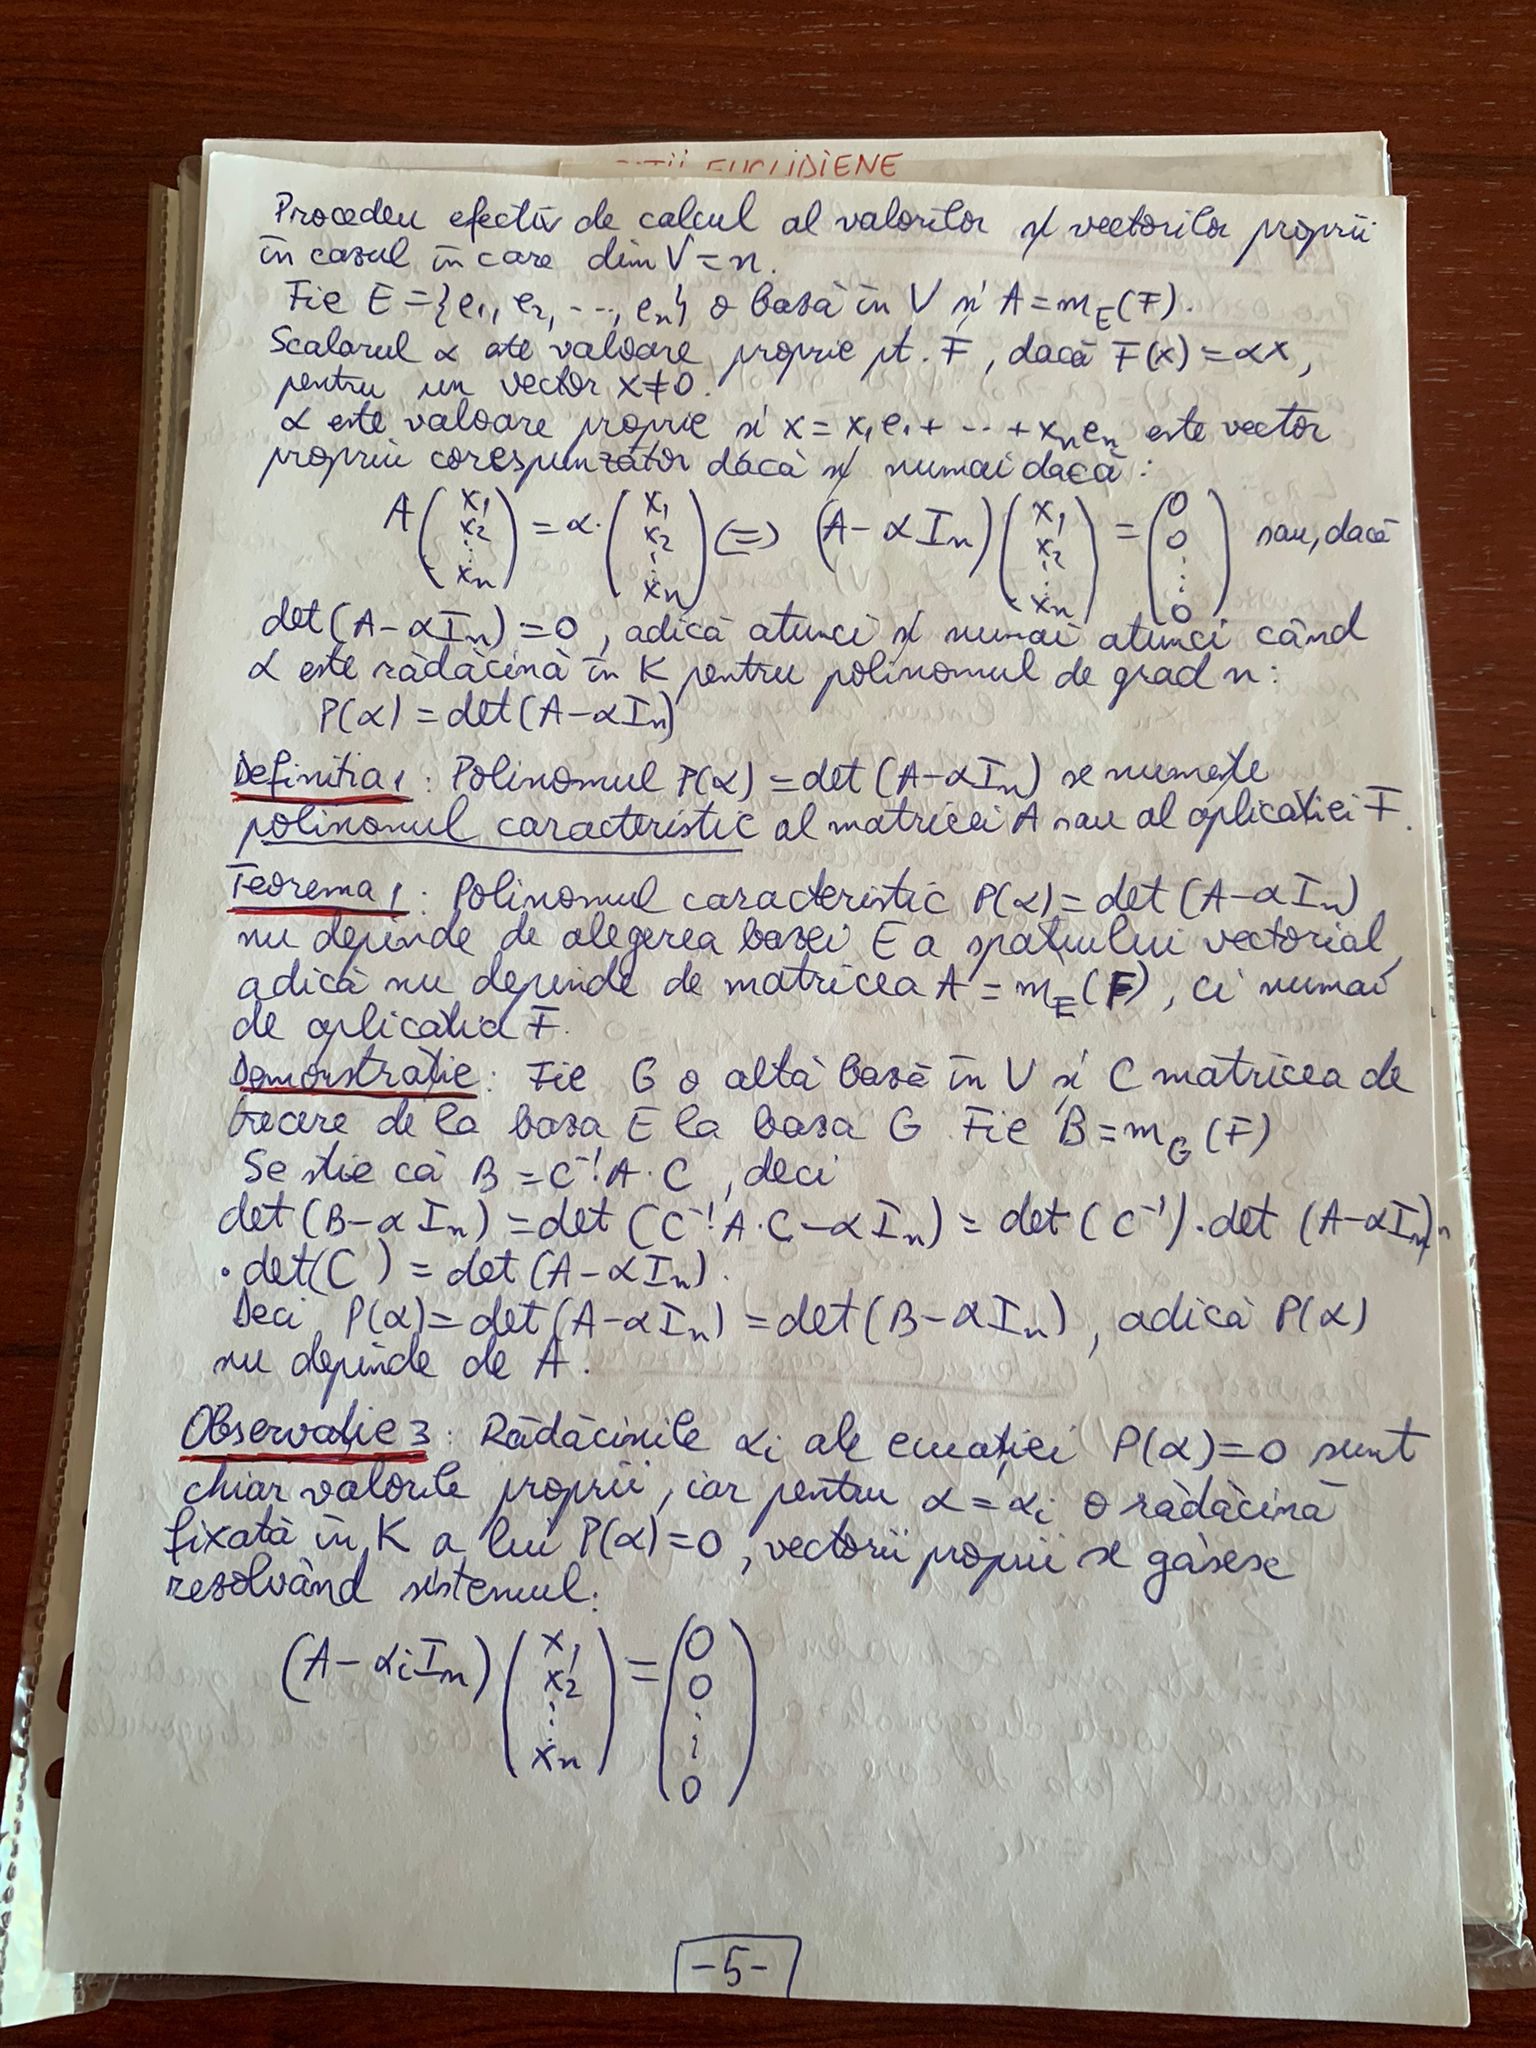 EUCLIDIENE
Procedeu efectiv de calcul al valorilor și vectorilor proprii
în cazul în care dim V = n.
Fie E = {e₁, e₂, ..., eₙ} o bază în V și A = m_E(F).
Scalarul α este valoare proprie pt. F, dacă F(x) = αx,
pentru un vector x ≠ 0.
α este valoare proprie și x = x₁e₁ + ... + xₙeₙ este vector
propriu corespunzător dacă și numai dacă:
A (x₁ x₂ ⋮ xₙ) = α · (x₁ x₂ ⋮ xₙ) (=) (A - αIₙ) (x₁ x₂ ⋮ xₙ) = (0 0 ⋮ 0) sau, dacă
det(A - αIₙ) = 0, adică atunci și numai atunci când
α este rădăcină în K pentru polinomul de grad n:
P(α) = det(A - αIₙ)
Definiția 1: Polinomul P(α) = det(A - αIₙ) se numește
polinomul caracteristic al matricei A sau al aplicației F.
Teorema 1: Polinomul caracteristic P(α) = det(A - αIₙ)
nu depinde de alegerea bazei E a spațiului vectorial,
adică nu depinde de matricea A = m_E(F), ci numai
de aplicația F.
Demonstrație: Fie G o altă bază în V și C matricea de
trecere de la baza E la baza G. Fie B = m_G(F)
Se știe că B = C⁻¹A·C, deci
det(B - αIₙ) = det(C⁻¹A·C - αIₙ) = det(C⁻¹)·det(A - αIₙ)·
·det(C) = det(A - αIₙ).
Deci P(α) = det(A - αIₙ) = det(B - αIₙ), adică P(α)
nu depinde de A.
Observație 3: Rădăcinile αᵢ ale ecuației P(α) = 0 sunt
chiar valorile proprii, iar pentru α = αᵢ o rădăcină
fixată în K a lui P(α) = 0, vectorii proprii se găsesc
rezolvând sistemul:
(A - αᵢIₙ) (x₁ x₂ ⋮ xₙ) = (0 0 ⋮ 0)
-5-